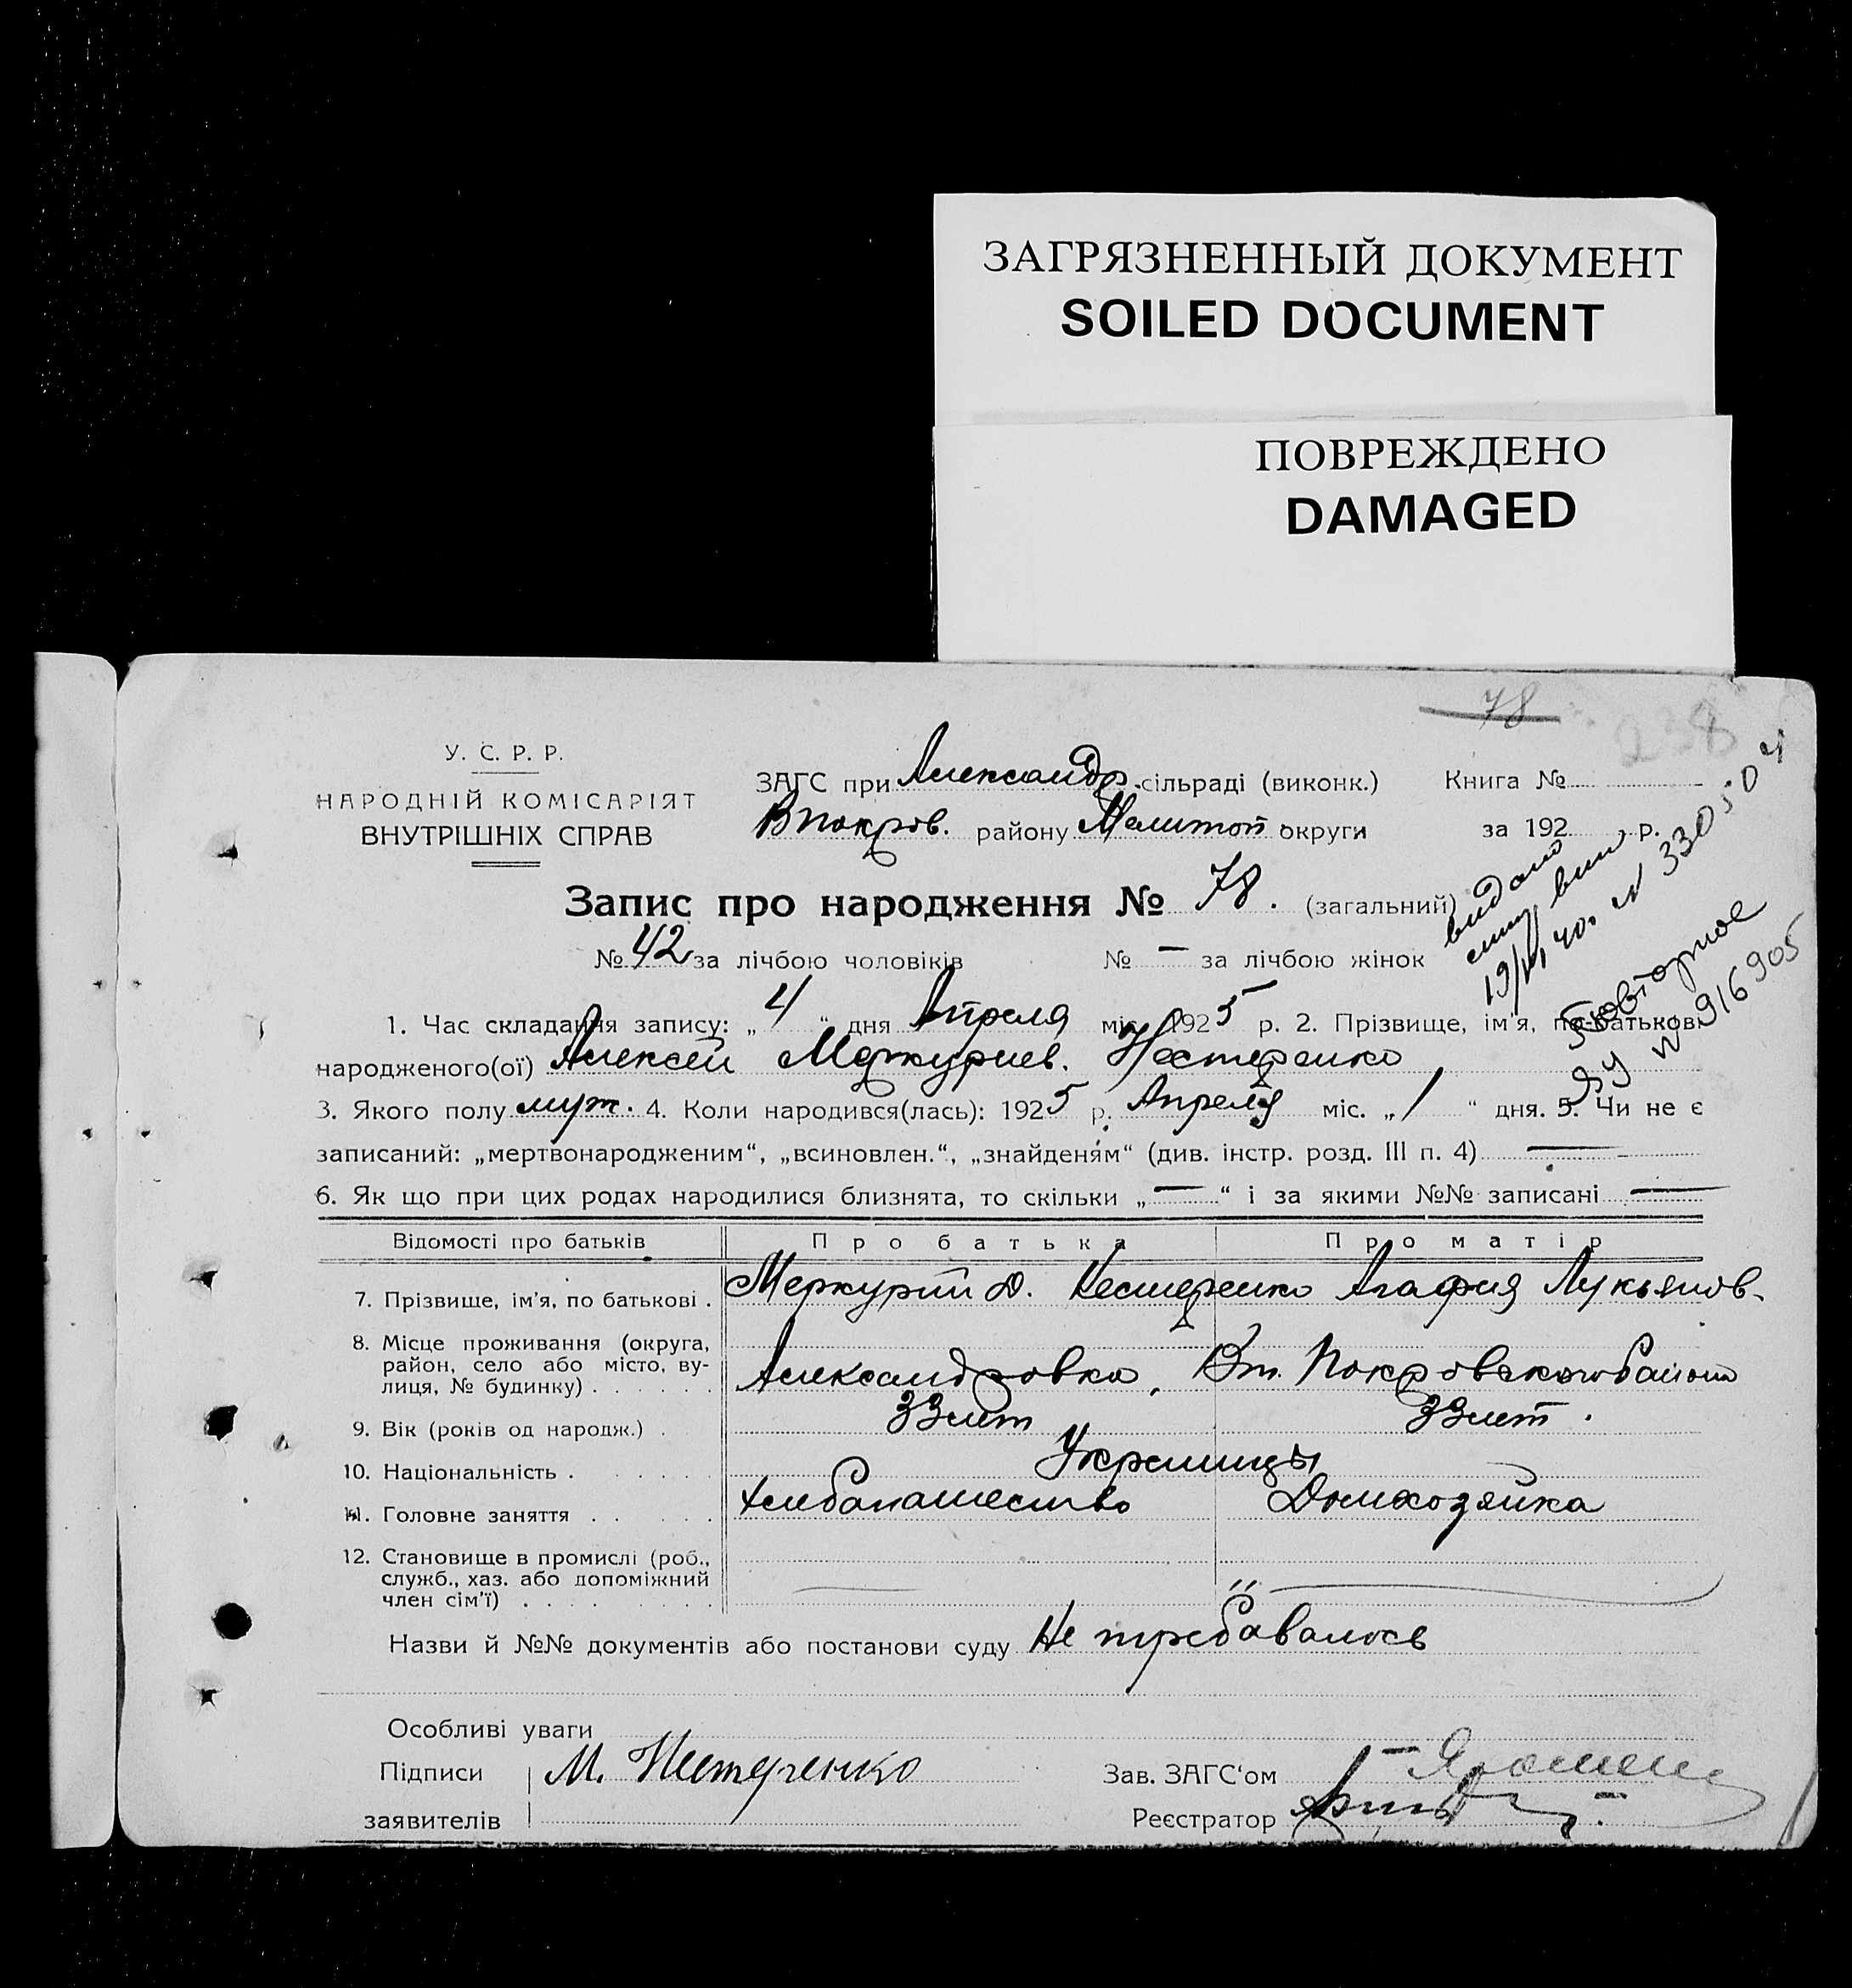 ЗАГРЯЗНЕННЫЙ ДОКУМЕНТ
SOILED DOCUMENT
ПОВРЕЖДЕНО
DAMAGED
78
238
У. С. Р. Р.
НАРОДНІЙ КОМІСАРІЯТ
ВНУТРІШНІХ СПРАВ
ЗАГС при Александр. сільраді (виконк.) Книга №
Впокров. району Мелитоп округи за 192 р.
Запис про народження № 78. (загальний)
№ 42 за лічбою чоловіків № — за лічбою жінок
видано
19/VI 40. № 330504
повторное
ЯУ № 916905
1. Час складання запису: „4“ дня Апреля міс. 1925 р. 2. Прізвище, ім'я, по-батькові
народженого(ої) Алексей Меркуриев. Нестеренко
3. Якого полу муж. 4. Коли народився(лась): 1925 р. Апреля міс. „1“ дня. 5. Чи не є
записаний: „мертвонародженим“, „всиновлен.“, „знайденям“ (див. інстр. розд. III п. 4) —
6. Як що при цих родах народилися близнята, то скільки „—“ і за якими №№ записані —
Відомості про батьків Про батька Про матір
7. Прізвище, ім'я, по батькові . Меркурий Д. Нестеренко Агафия Лукьянов.
8. Місце проживання (округа,
район, село або місто, ву-
лиця, № будинку) . . . . . . Александровка, Вт. Покровского района
9. Вік (років од народж.) . 33 лет 33 лет.
10. Національність . . . . . Украинцы
11. Головне заняття . . . . . Хлебопашество Домхозяйка
12. Становище в промислі (роб.,
служб., хаз. або допоміжний
член сім'ї) . . . . . . . . "
Назви й №№ документів або постанови суду Не требовалось
Особливі уваги
Підписи М. Нестеренко Зав. ЗАГС‘ом
заявителів Реєстратор